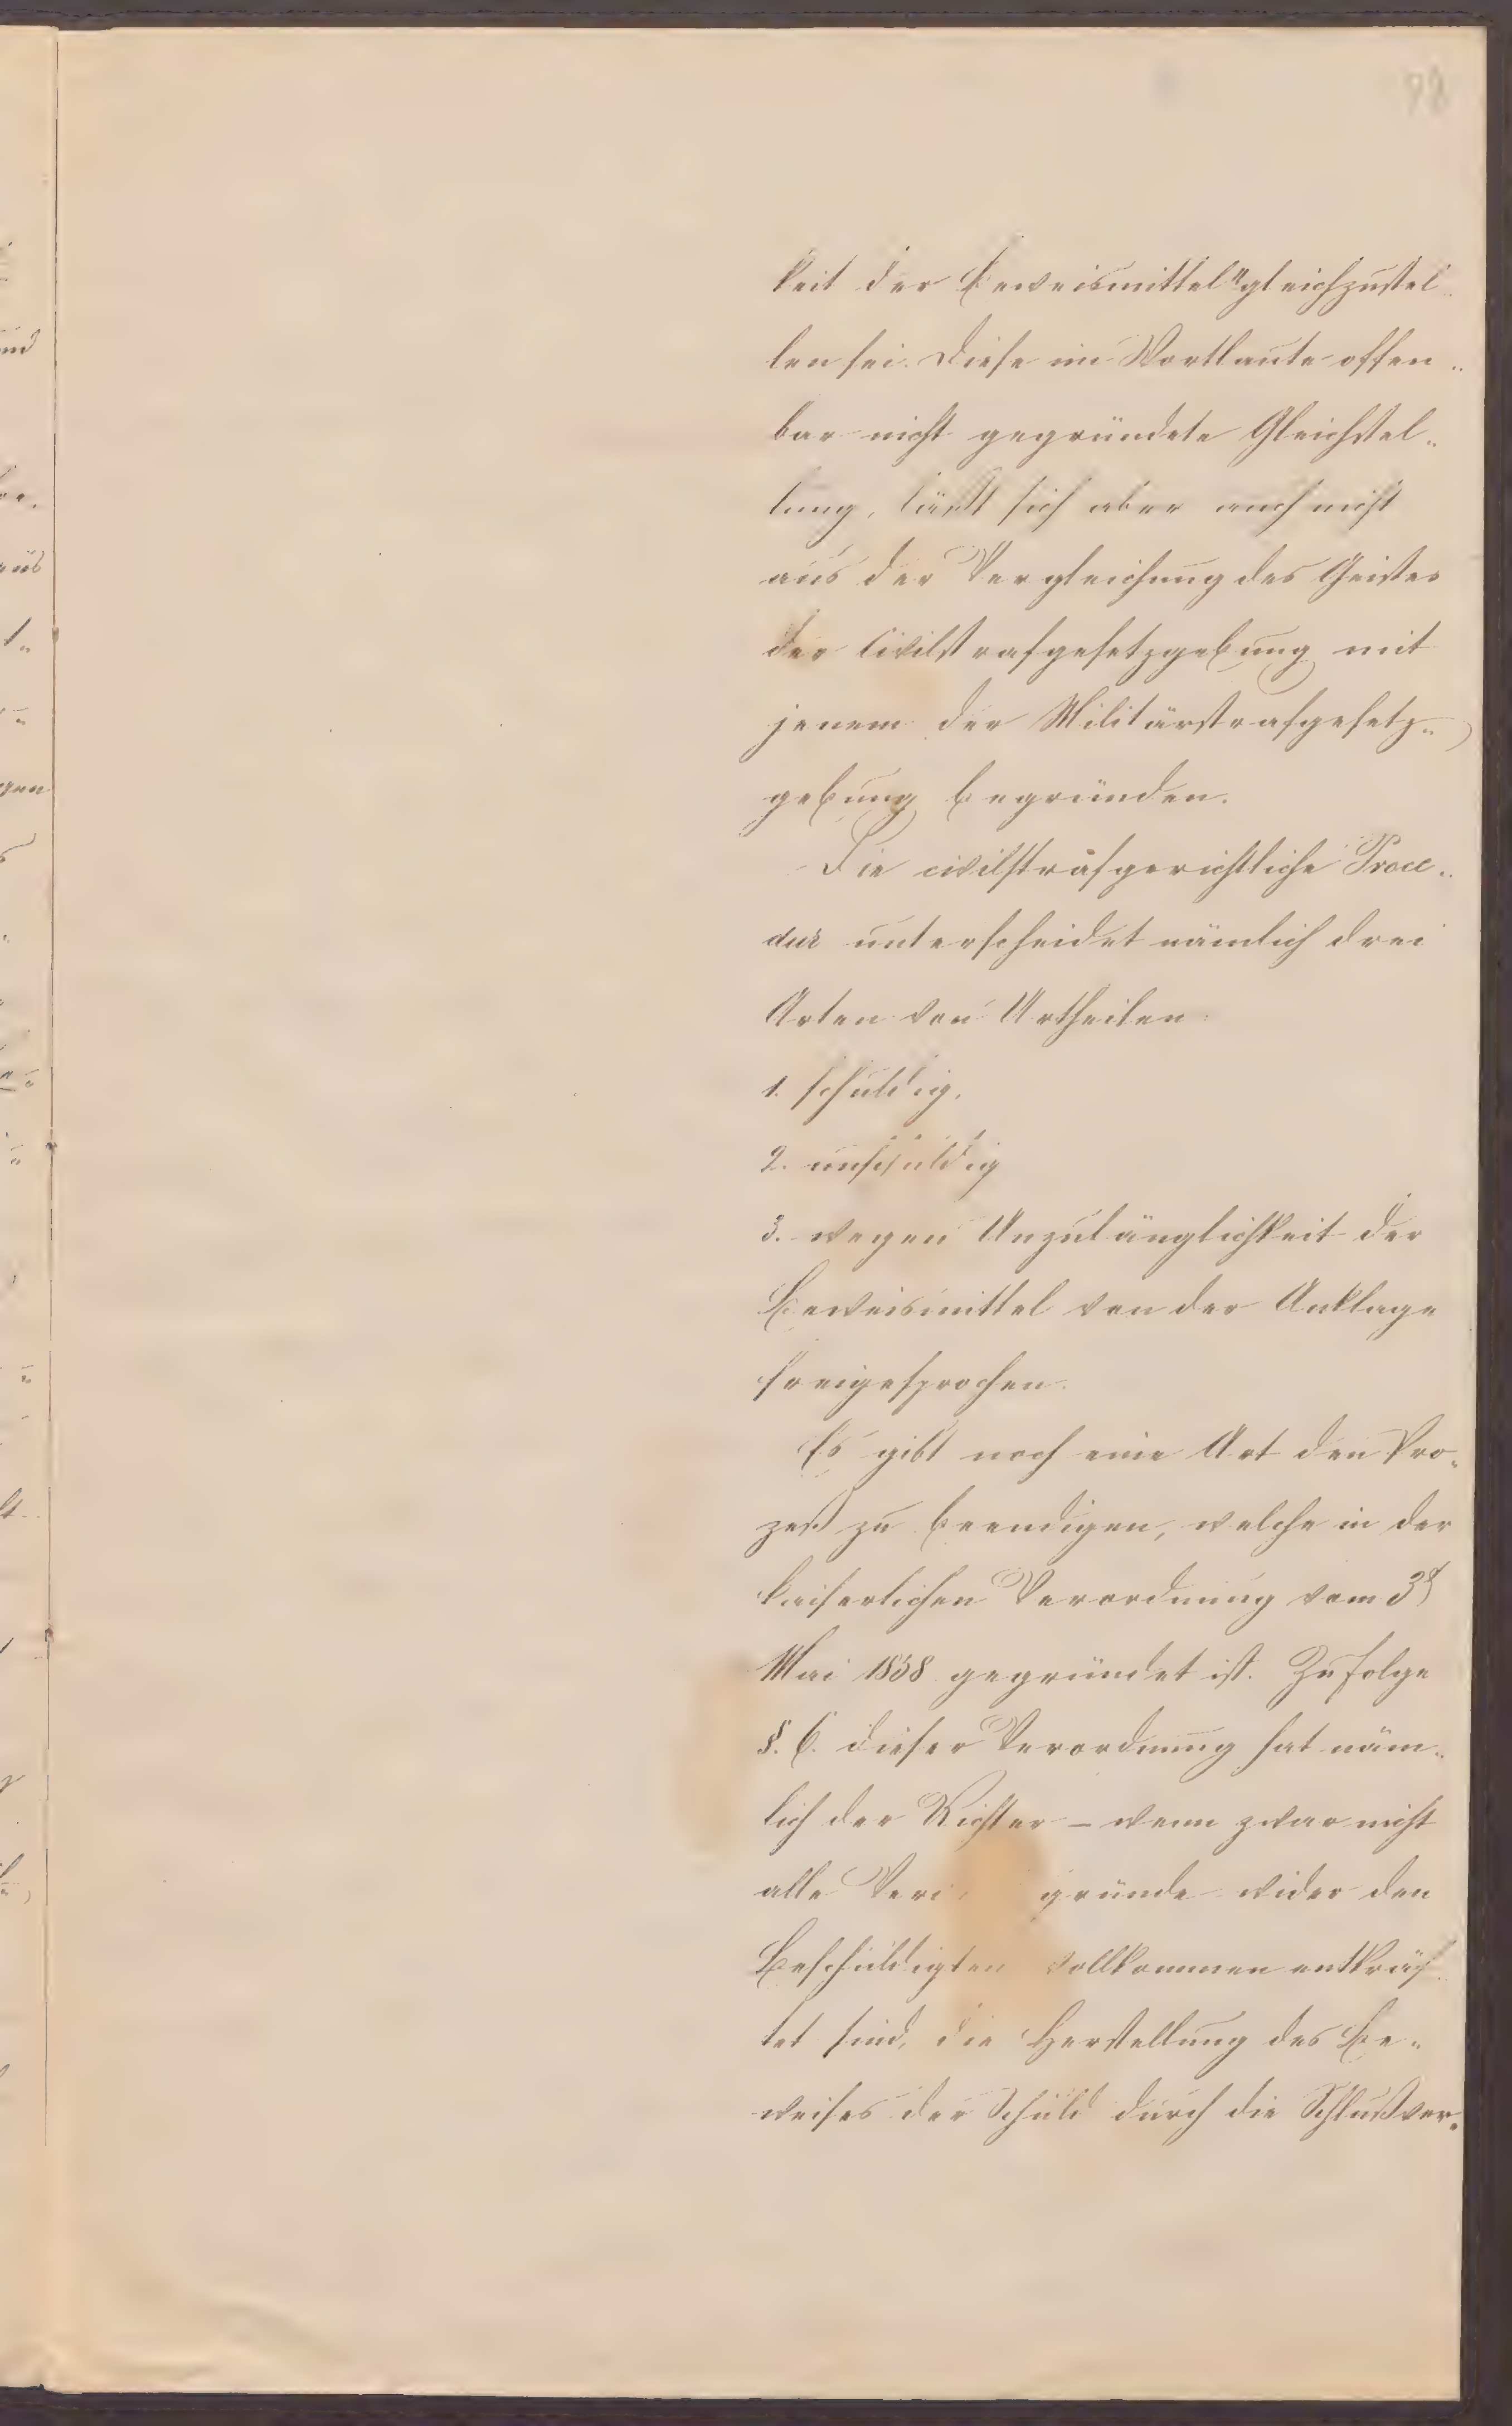 98
keit der Beweismittel" gleichzustel
len sei. Diese im Wortlaute offen„
bar nicht gegründete Gleichstel„
lung, läßt sich aber auch nicht
aus der Vergleichung des Geistes
der Civilstrafgesetzgebung mit
jenem der Militärstrafgesetz„
gebung begründen.
Die civilstrafgerichtliche Proce„
dur unterscheidet nämlich drei
Arten von Urtheilen:
1. schuldig,
2. unschuldig
3. wegen Unzulänglichkeit der
Beweismittel von der Anklage
freigesprochen.
Es gibt noch eine Art den Pro„
zeß zu beendigen, welche in der
kaiserlichen Verordnung vom 3t
Mai 1858 gegründet ist. Zufolge
§. 6. dieser Verordnung hat näm„
lich der Richter – wenn zwar nicht
alle gründe wider den
Beschuldigten vollkommen entkräf
tet sind, die Herstellung des Be„
weises der Schuld durch die Schlußver„